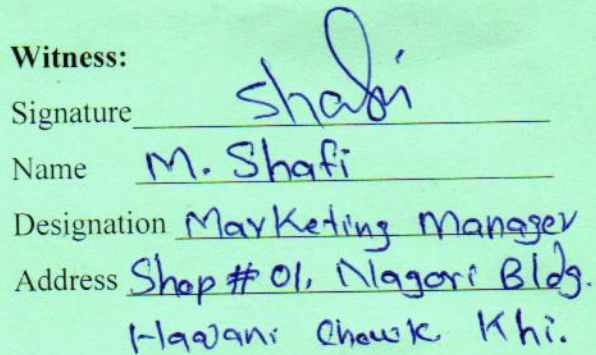 Witness:
Signature Shafi
Name M. Shafi
Designation Marketing Manager
Address Shop # 01, Nagori Bldg.
Hasani Chowk Khi.